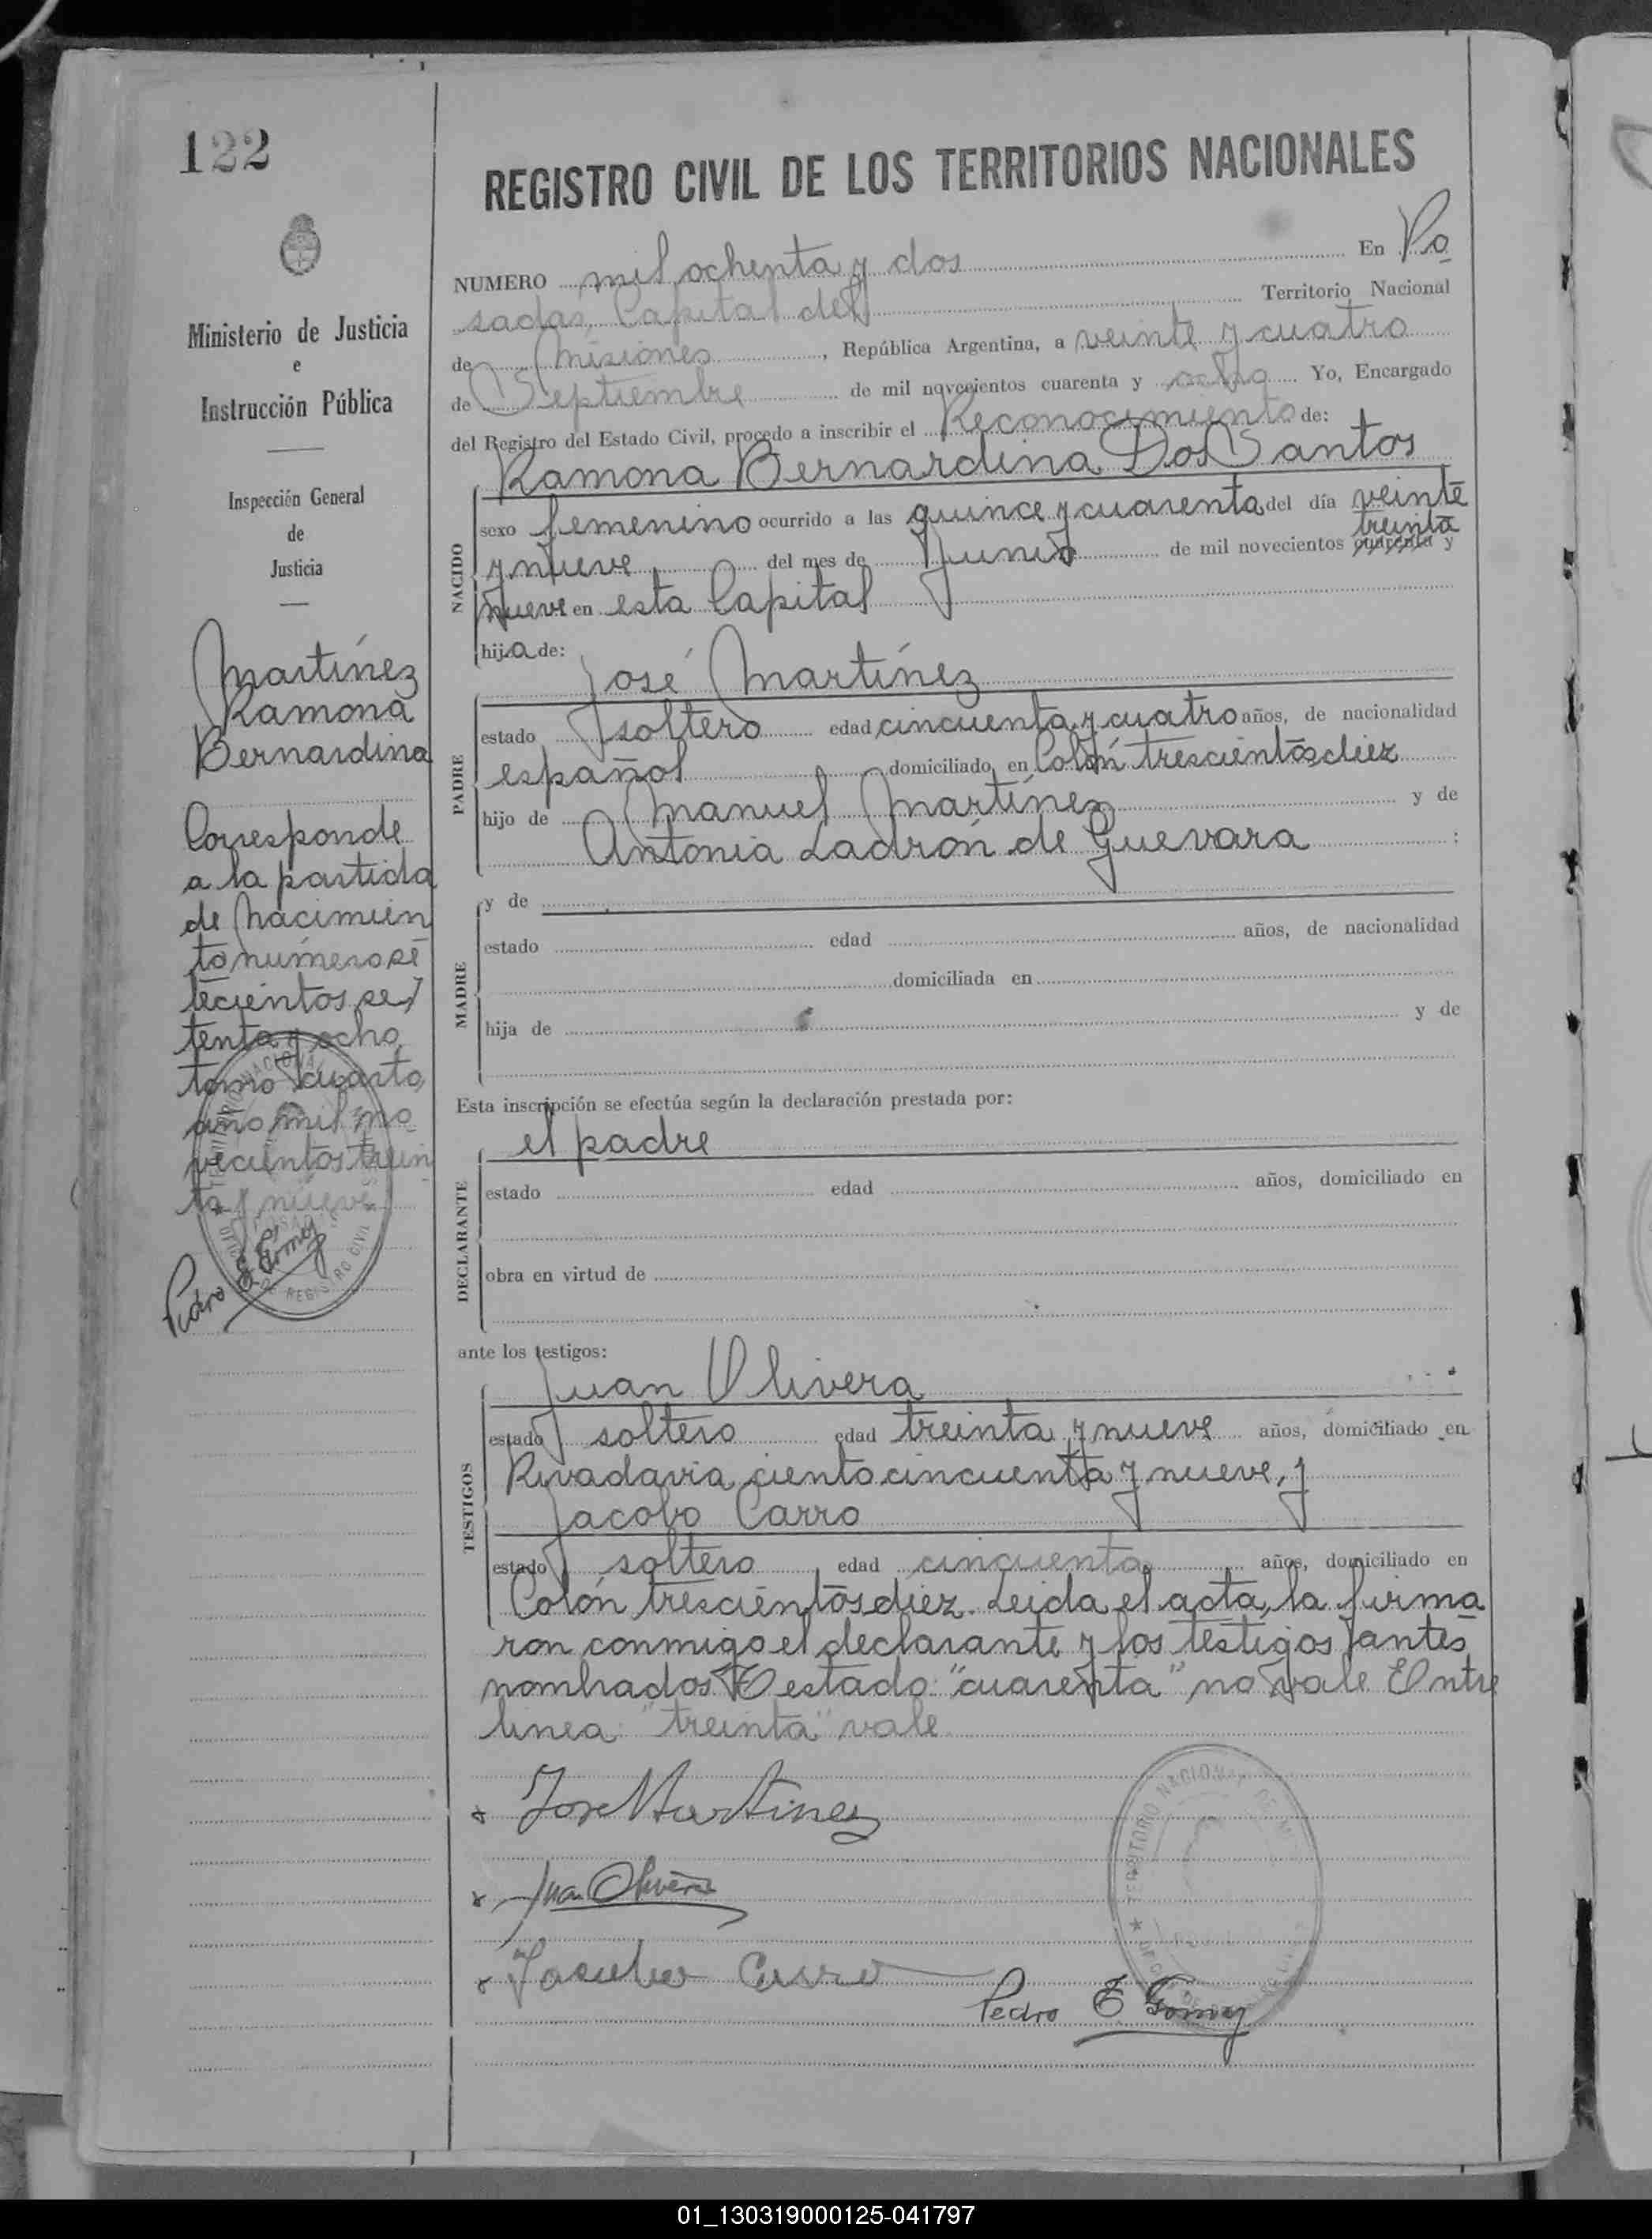 122
REGISTRO CIVIL DE LOS TERRITORIOS NACIONALES
NUMERO mil ochenta y dos En Po
sadas, Capital del Territorio Nacional
de Misiones, República Argentina, a veinte y cuatro
de Septiembre de mil novecientos cuarenta y ocho Yo, Encargado
del Registro del Estado Civil, procedo a inscribir el Reconocimiento de:
Ramona Bernardina Dos Santos
NACIDO
sexo femenino ocurrido a las quince y cuarenta del día veinte
treinta
y nueve del mes de Junio de mil novecientos cuarenta y
nueve en esta Capital
hija de:
José Martínez
PADRE
estado soltero edad cincuenta y cuatro años, de nacionalidad
español domiciliado en Colón trescientos diez
hijo de Manuel Martínez y de
Antonia Ladrón de Guevara :
MADRE
y de
estado edad años, de nacionalidad
domiciliada en
hija de y de
Esta inscripción se efectúa según la declaración prestada por:
el padre
DECLARANTE
estado edad años, domiciliado en
obra en virtud de
ante los testigos:
Juan Olivera
TESTIGOS
estado soltero edad treinta y nueve años, domiciliado en
Rivadavia ciento cincuenta y nueve, y
Jacobo Carro
estado soltero edad cincuenta años, domiciliado en
Colón trescientos diez. Leida el acta, la firma
ron conmigo el declarante y los testigos antes
nombrados Testado: "cuarenta" no vale Entre
linea: "treinta" vale
Jose Martinez
Juan Olivera
Jacobo Carro
Pedro E Gómez
TERRITORIO NACIONAL DE MI
Ministerio de Justicia
e
Instrucción Pública
Inspección General
de
Justicia
Martínez
Ramona
Bernardina
Corresponde
a la partida
de nacimien
to número se
tecientos se
tenta y ocho
tomo cuarto,
año mil no
vecientos trein
ta y nueve
Pedro E Gómez
REGISTRO CIVIL
01_130319000125-041797